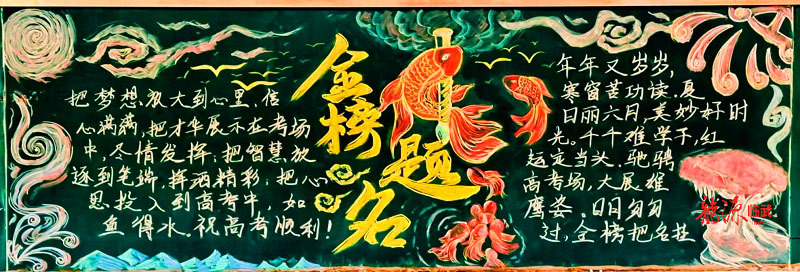 把梦想放大到心里,信
心满满,把才华展示在考场
中,尽情发挥;把智慧放
逐到笔端,挥洒精彩;把心
思投入到高考中,如
鱼得水.祝高考顺利!
金榜题名
年年又岁岁,
寒窗苦功读.夏
日丽六月,美妙好时
光。千千难学子,红
运定当头,驰骋
高考场,大展雄
鹰姿。日日匆匆
过,金榜把名挂